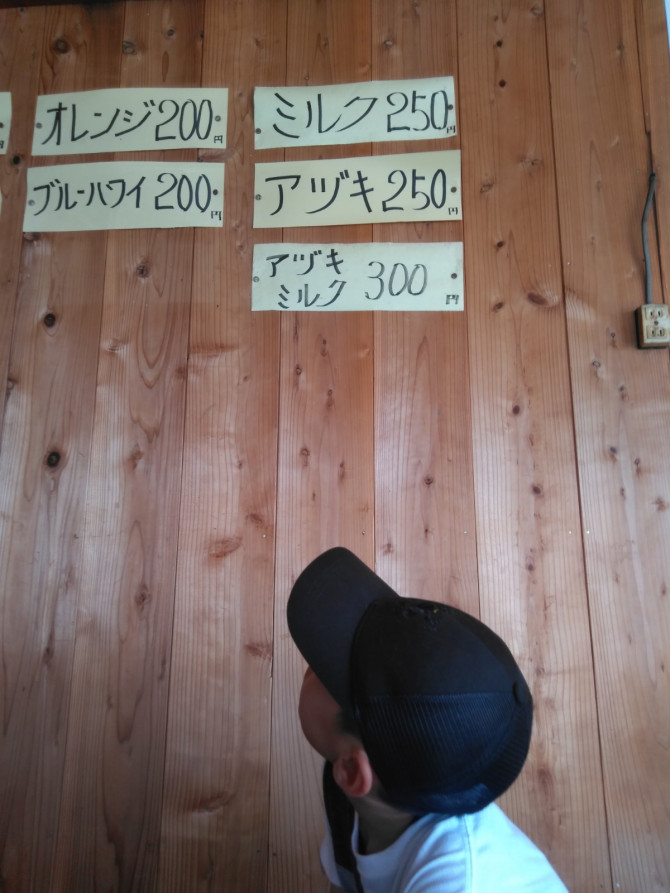 オレンジ200円
ブルーハワイ200円
ミルク250円
アヅキ250円
アヅキ
ミルク 300円